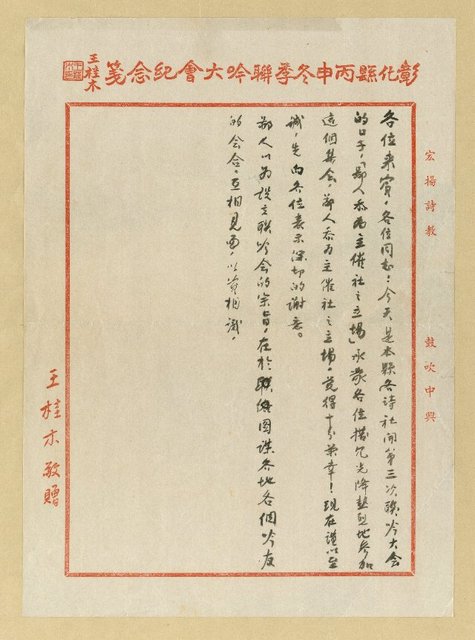 彰化縣丙申冬季聯吟大會紀念箋
王桂木
宏揚詩教 鼓吹中興
各位來賓，各位同志：今天是本縣各詩社開第三次聯吟大會
的日子，「鄙人忝為主催社之立場」承蒙各位撥冗光降熱烈地參加
這個集會，鄙人忝為主催社之立場，覺得十分榮幸！現在謹以至
誠，先向各位表示深切的謝意。
鄙人以為設立聯吟會的宗旨，在於聯絡圖謀各地各個吟友
的會合，互相見面，以資相識，
王桂木敬贈